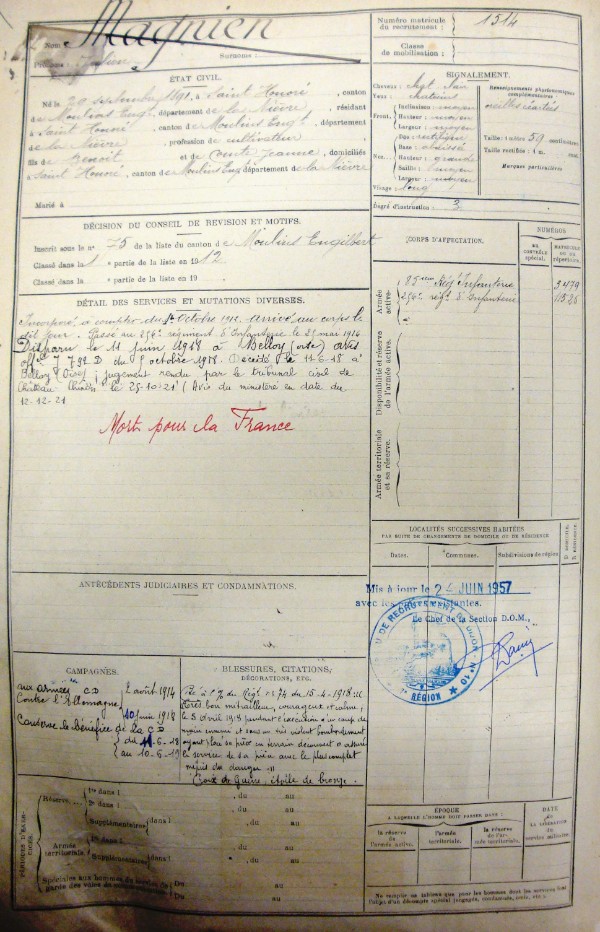 Nom : Magnien
Prénoms : Julien Surnoms :
Numéro matricule du recrutement : 1514
Classe de mobilisation :
ÉTAT CIVIL.
Né le 29 septembre 1891, à Saint Honoré, canton
de Moulins Engt, département de la Nièvre, résidant
à Saint Honoré, canton de Moulins Engt, département
de la Nièvre, profession de cultivateur
fils de Benoit et de Comte Jeanne, domiciliés
à Saint Honoré, canton de Moulins Eng département de la Nièvre
Marié à
SIGNALEMENT.
Cheveux :
Yeux :
Renseignements physionomiques complémentaires :
oreilles écartées
Front.
Inclinaison : moyen
Hauteur : moyen
Largeur : moyen
Nez.
Dos : rectiligne
Base : abaissée
Hauteur : grande
Saillie : moyen
Largeur : moyen
Visage : long
Taille : 1 mètre 59 centimètres
Taille rectifiée : 1 m. cent.
Marques particulières
Degré d'instruction : 3
DÉCISION DU CONSEIL DE REVISION ET MOTIFS.
Inscrit sous le n° 75 de la liste du canton de Moulins Engilbert
Classé dans la 1 e partie de la liste en 1912
Classé dans la e partie de la liste en 19
CORPS D'AFFECTATION.
NUMÉROS
AU CONTRÔLE SPÉCIAL.
MATRICULE OU AU RÉPERTOIRE.
Armée active.
95ème Rég. Infanterie
256e régt d'Infanterie
Disponibilité et réserve de l'armée active.
Armée territoriale et sa réserve.
DÉTAIL DES SERVICES ET MUTATIONS DIVERSES.
Incorporé à compter du Octobre 1912, arrivé au corps le
dit jour. Passé au 256e régiment d'Infanterie le mai 1916
Disparu le 11 juin 1918 à Belloy (Oise) avis
offel 7.792 D du 5 octobre 1918. Décédé le 11-6-18 à
Belloy (Oise), jugement rendu par le tribunal civil de
Château Chinon le 25-10-21 (Avis du ministère en date du
12-12-21
Mort pour la France
LOCALITÉS SUCCESSIVES HABITÉES
PAR SUITE DE CHANGEMENTS DE DOMICILE OU DE RÉSIDENCE
Dates. Communes. Subdivisions de région. D. DOMICILE. R. RÉSIDENCE.
ANTÉCÉDENTS JUDICIAIRES ET CONDAMNATIONS.
Mis à jour le 24 JUIN 1957
avec les existantes.
Le Chef de la Section D.O.M.,
RECRUTEMENT DE DIJON
RÉGION
CAMPAGNES.
aux armées CD 2 août 1914
Contre l'Allemagne, 10 juin 1918
Conserve le bénéfice de la CD
du 11-6-18
au 10-6-19
BLESSURES, CITATIONS,
DÉCORATIONS, ETC.
Cité à l'O. du Régt n° 74 du 15-4-1918
très bon mitrailleur, courageux et calme,
le 5 avril 1918 pendant l'exécution d'un coup de
main ennemi et sous un très violent bombardement
ayant placé sa pièce en terrain découvert a assuré
le service de sa pièce avec le plus complet
mépris du danger
Croix de Guerre, étoile de bronze.
PÉRIODES D'EXERCICES.
Réserve
1re dans l , du au
2e dans l , du au
Supplémentaires dans l , du au
Armée territoriale.
1re dans l , du au
Supplémentaires dans l , du au
Spéciales aux hommes du service de garde des voies de communication
Du au
Du au
ÉPOQUE
À LAQUELLE L'HOMME DOIT PASSER DANS :
la réserve de l'armée active.
l'armée territoriale.
la réserve de l'armée territoriale.
DATE
DE LA LIBÉRATION DU service militaire.
Ne remplir ce tableau que pour les hommes dont les services sont
l'objet d'un décompte spécial (engagés, condamnés, omis, etc.)